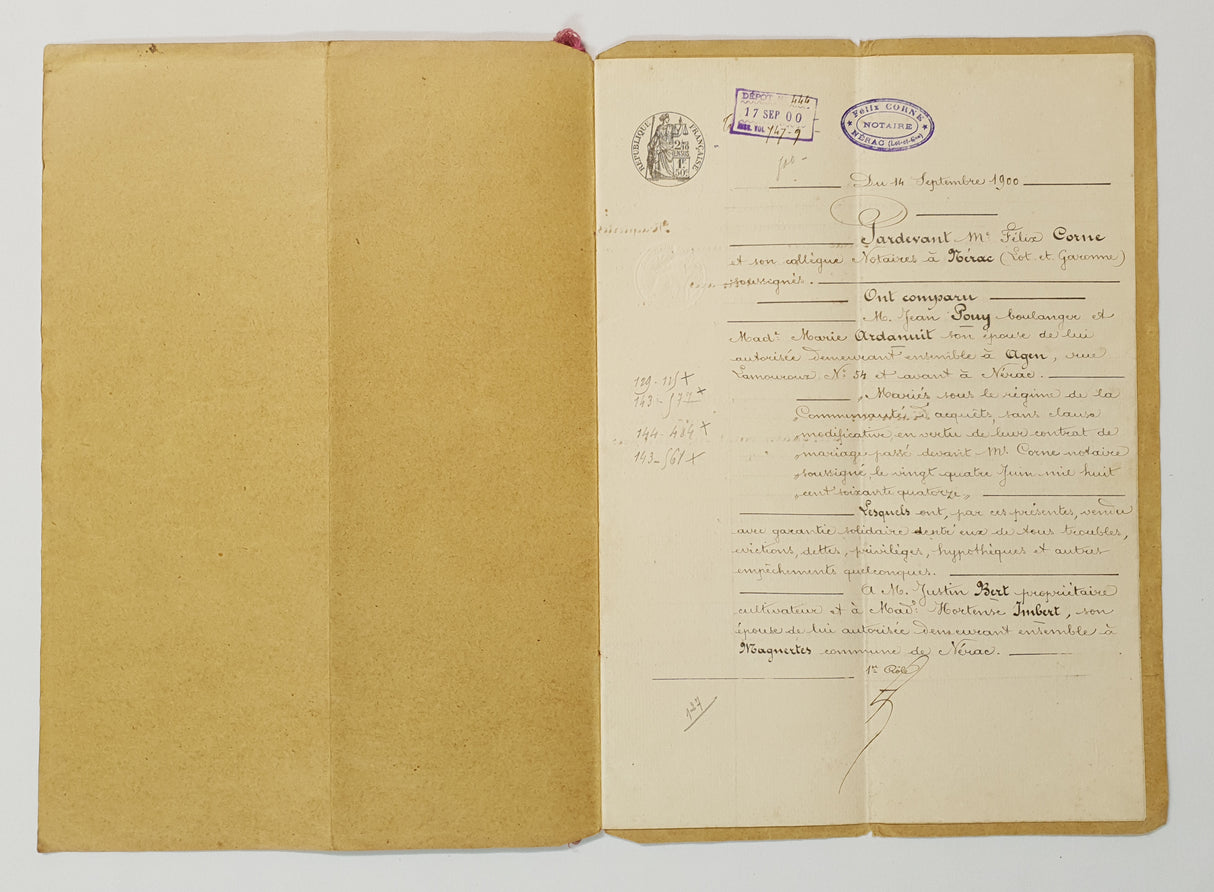 DÉPOT N° 444
17 SEP 00
VOL 747-9
Felix CORNE
NOTAIRE
NÉRAC (Lot-et-Gne)
RÉPUBLIQUE FRANÇAISE
Du 14 Septembre 1900
Pardevant Me Félix Corne
et son collègue Notaires à Nérac (Lot. et. Garonne)
soussignés.
Ont comparu
M. Jean Pouy boulanger et
Made Marie Ardanuit son épouse de lui
autorisée demeurant ensemble à Agen, rue
Lamouroux N° 54 et avant à Nérac.
129-115 x
143-577 x
144-484 x
143-561 x
„Mariés sous le régime de la
„Communauté d'acquêts, sans clause
„modificative, en vertu de leur contrat de
„mariage passé devant Me Corne notaire
„soussigné, le vingt quatre Juin mil huit
„cent soixante quatorze„
Lesquels ont, par ces présentes, vendu
avec garantie solidaire entr'eux de tous troubles,
évictions, dettes, privilèges, hypothèques et autres
empêchements quelconques.
A M. Justin Bert propriétaire
cultivateur et à Made Hortense Imbert, son
épouse de lui autorisée demeurant ensemble à
Magnertes commune de Nérac.
1er Rôle
127